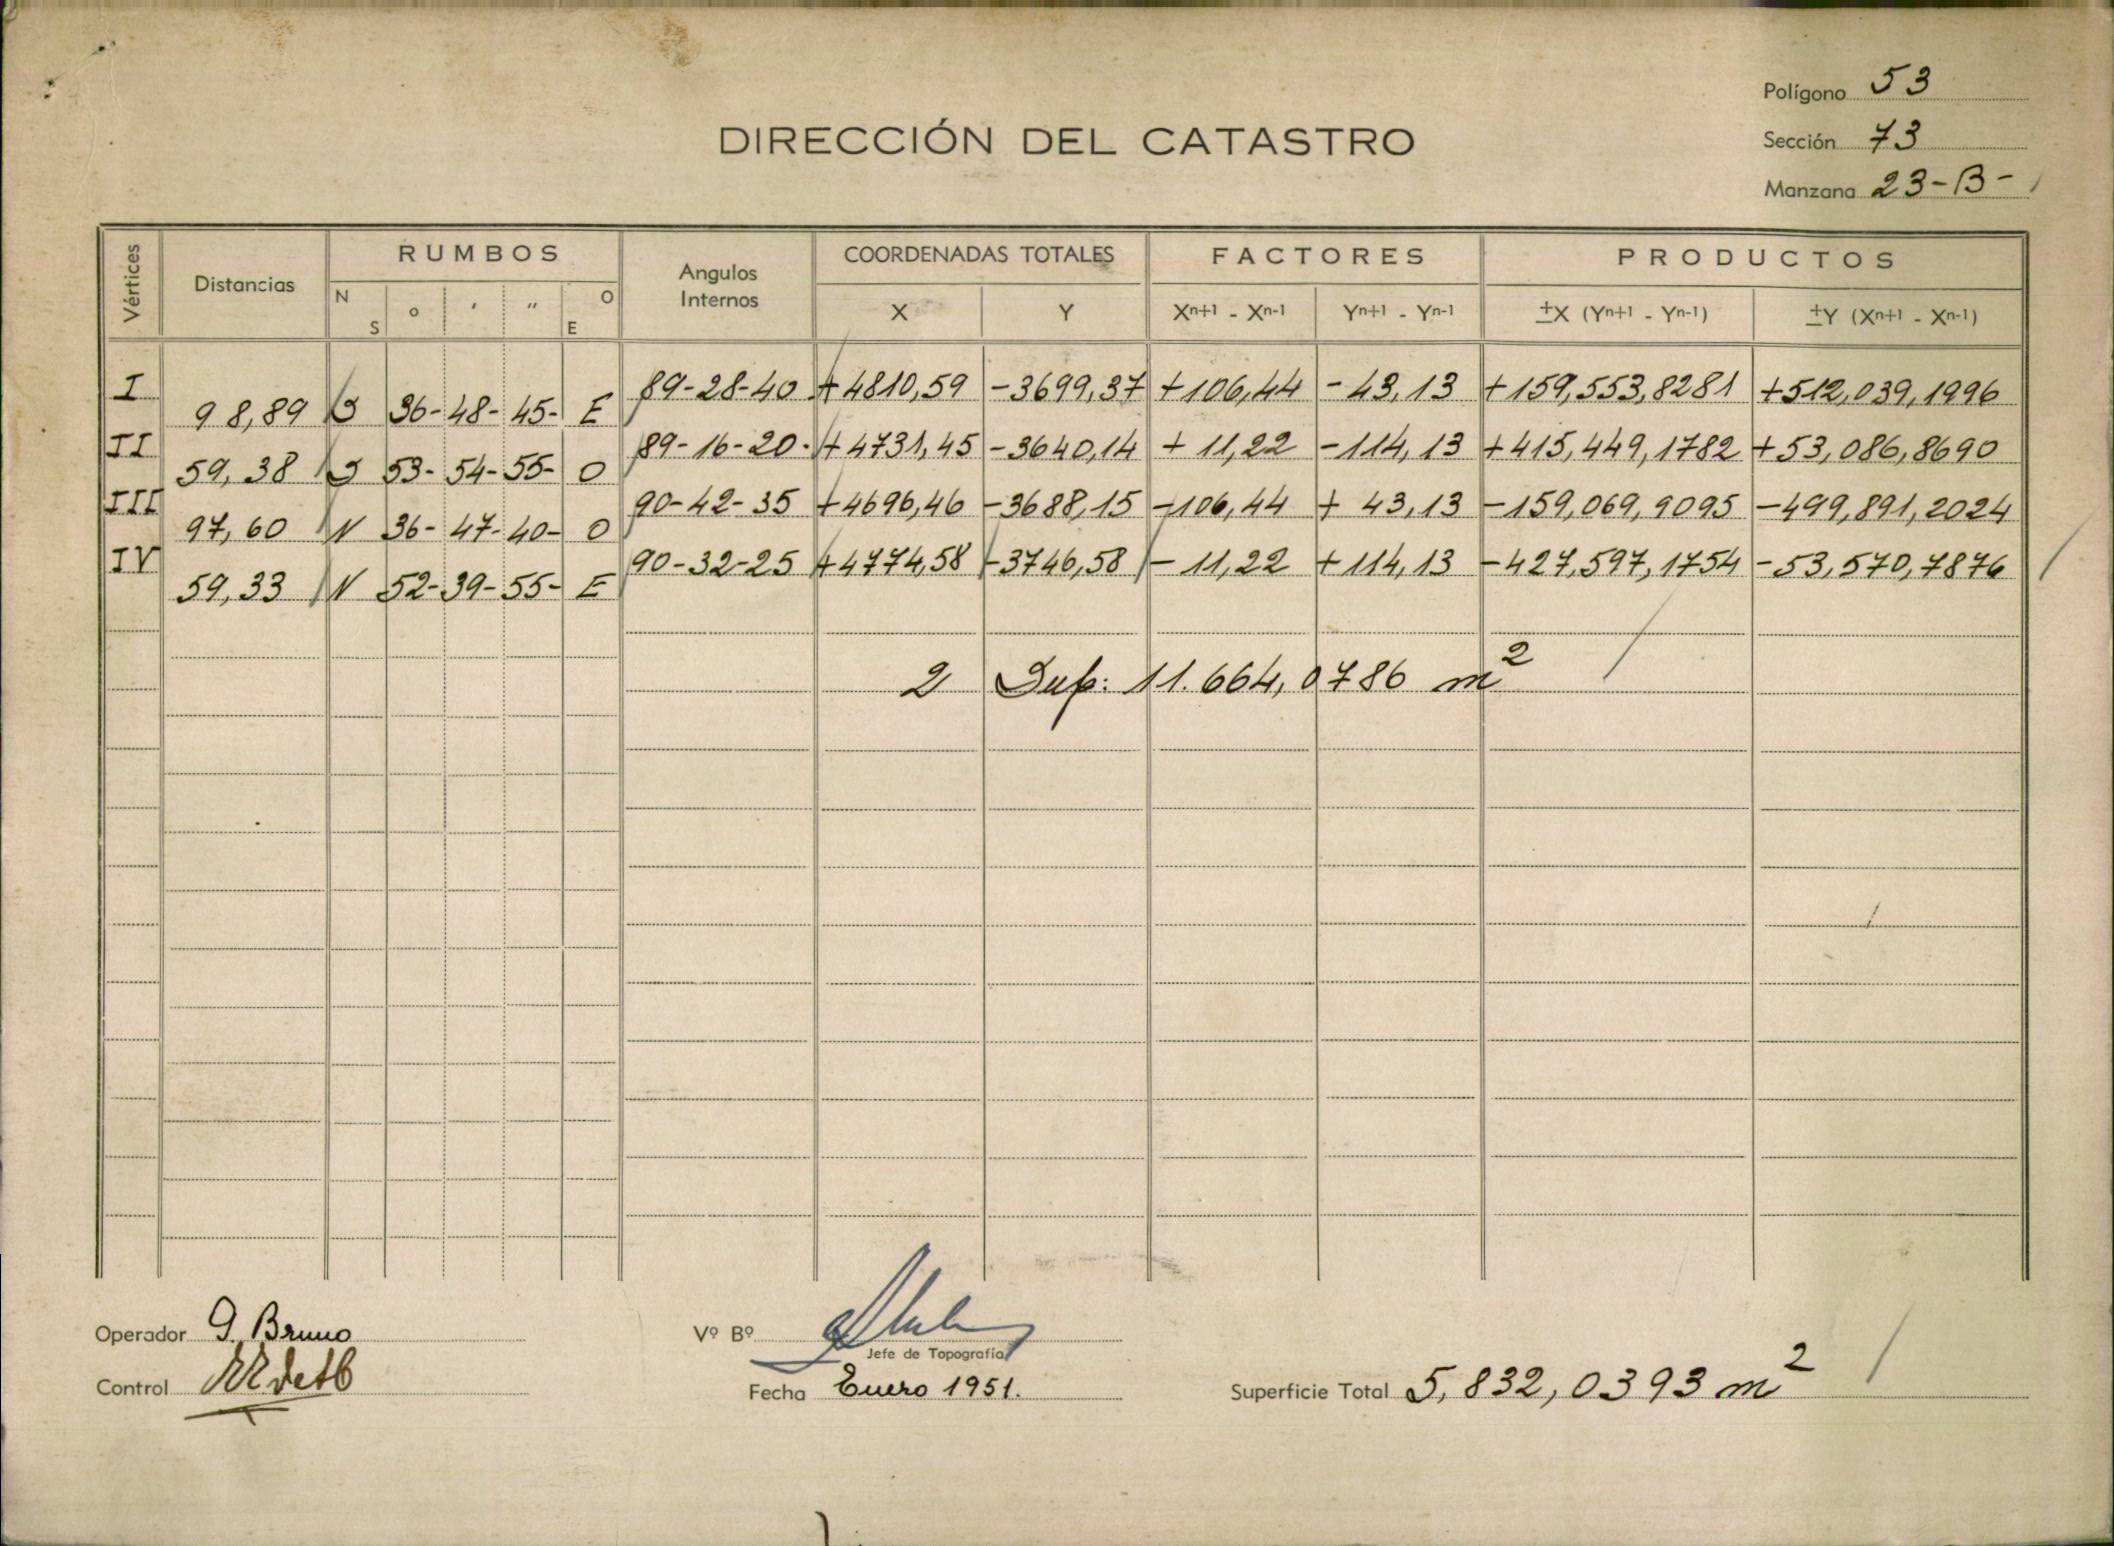 Polígono 53
DIRECCIÓN DEL CATASTRO
Sección 73
Manzana 23-B-
Vértices Distancias RUMBOS Angulos Internos COORDENADAS TOTALES FACTORES PRODUCTOS
N S ° ' " O E X Y Xn+1 - Xn-1 Yn+1 - Yn-1 ±X (Yn+1 - Yn-1) ±Y (Xn+1 - Xn-1)
I 89-28-40 +4810,59 -3699,37 +106,44 -43,13 +159,553,8281 +512,039,1996
98,89 S 36-48-45- E
II 89-16-20- +4731,45 -3640,14 +11,22 -114,13 +415,449,1782 +53,086,8690
59,38 S 53-54-55- O
III 90-42-35 +4696,46 -3688,15 -106,44 +43,13 -159,069,9095 -499,891,2024
97,60 N 36-47-40- O
IV 90-32-25 +4774,58 -3746,58 -11,22 +114,13 -427,597,1754 -53,570,7876
59,33 N 52-39-55- E
2 Sup: 11.664,0786 m2
Operador G. Bruno
Vº Bº
Jefe de Topografía
Control
Fecha Enero 1951.
Superficie Total 5,832,0393 m2